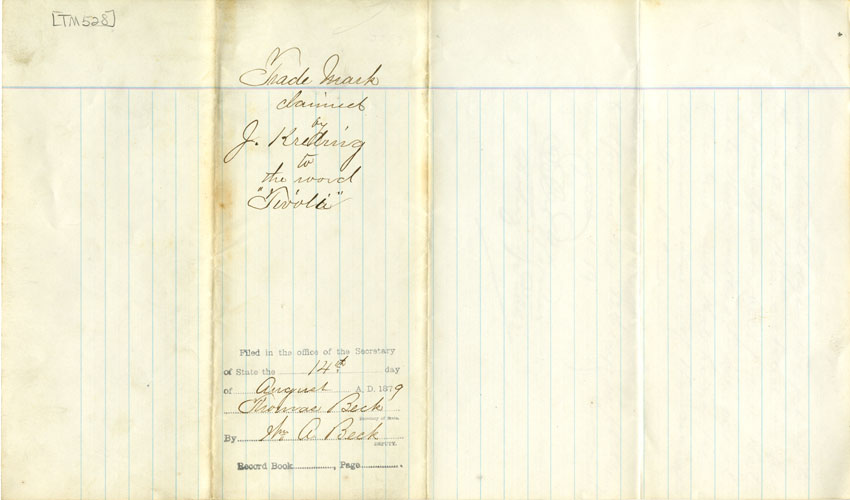 [TM528]
Trade Mark
claimed
by
J. Kreling
to
the word
"Tivoli"
Filed in the office of the Secretary
of State the 14th day
of August A. D. 1879
Thomas Beck
Secretary of State.
By Wm A. Beck
DEPUTY.
Record Book ............, Page ............